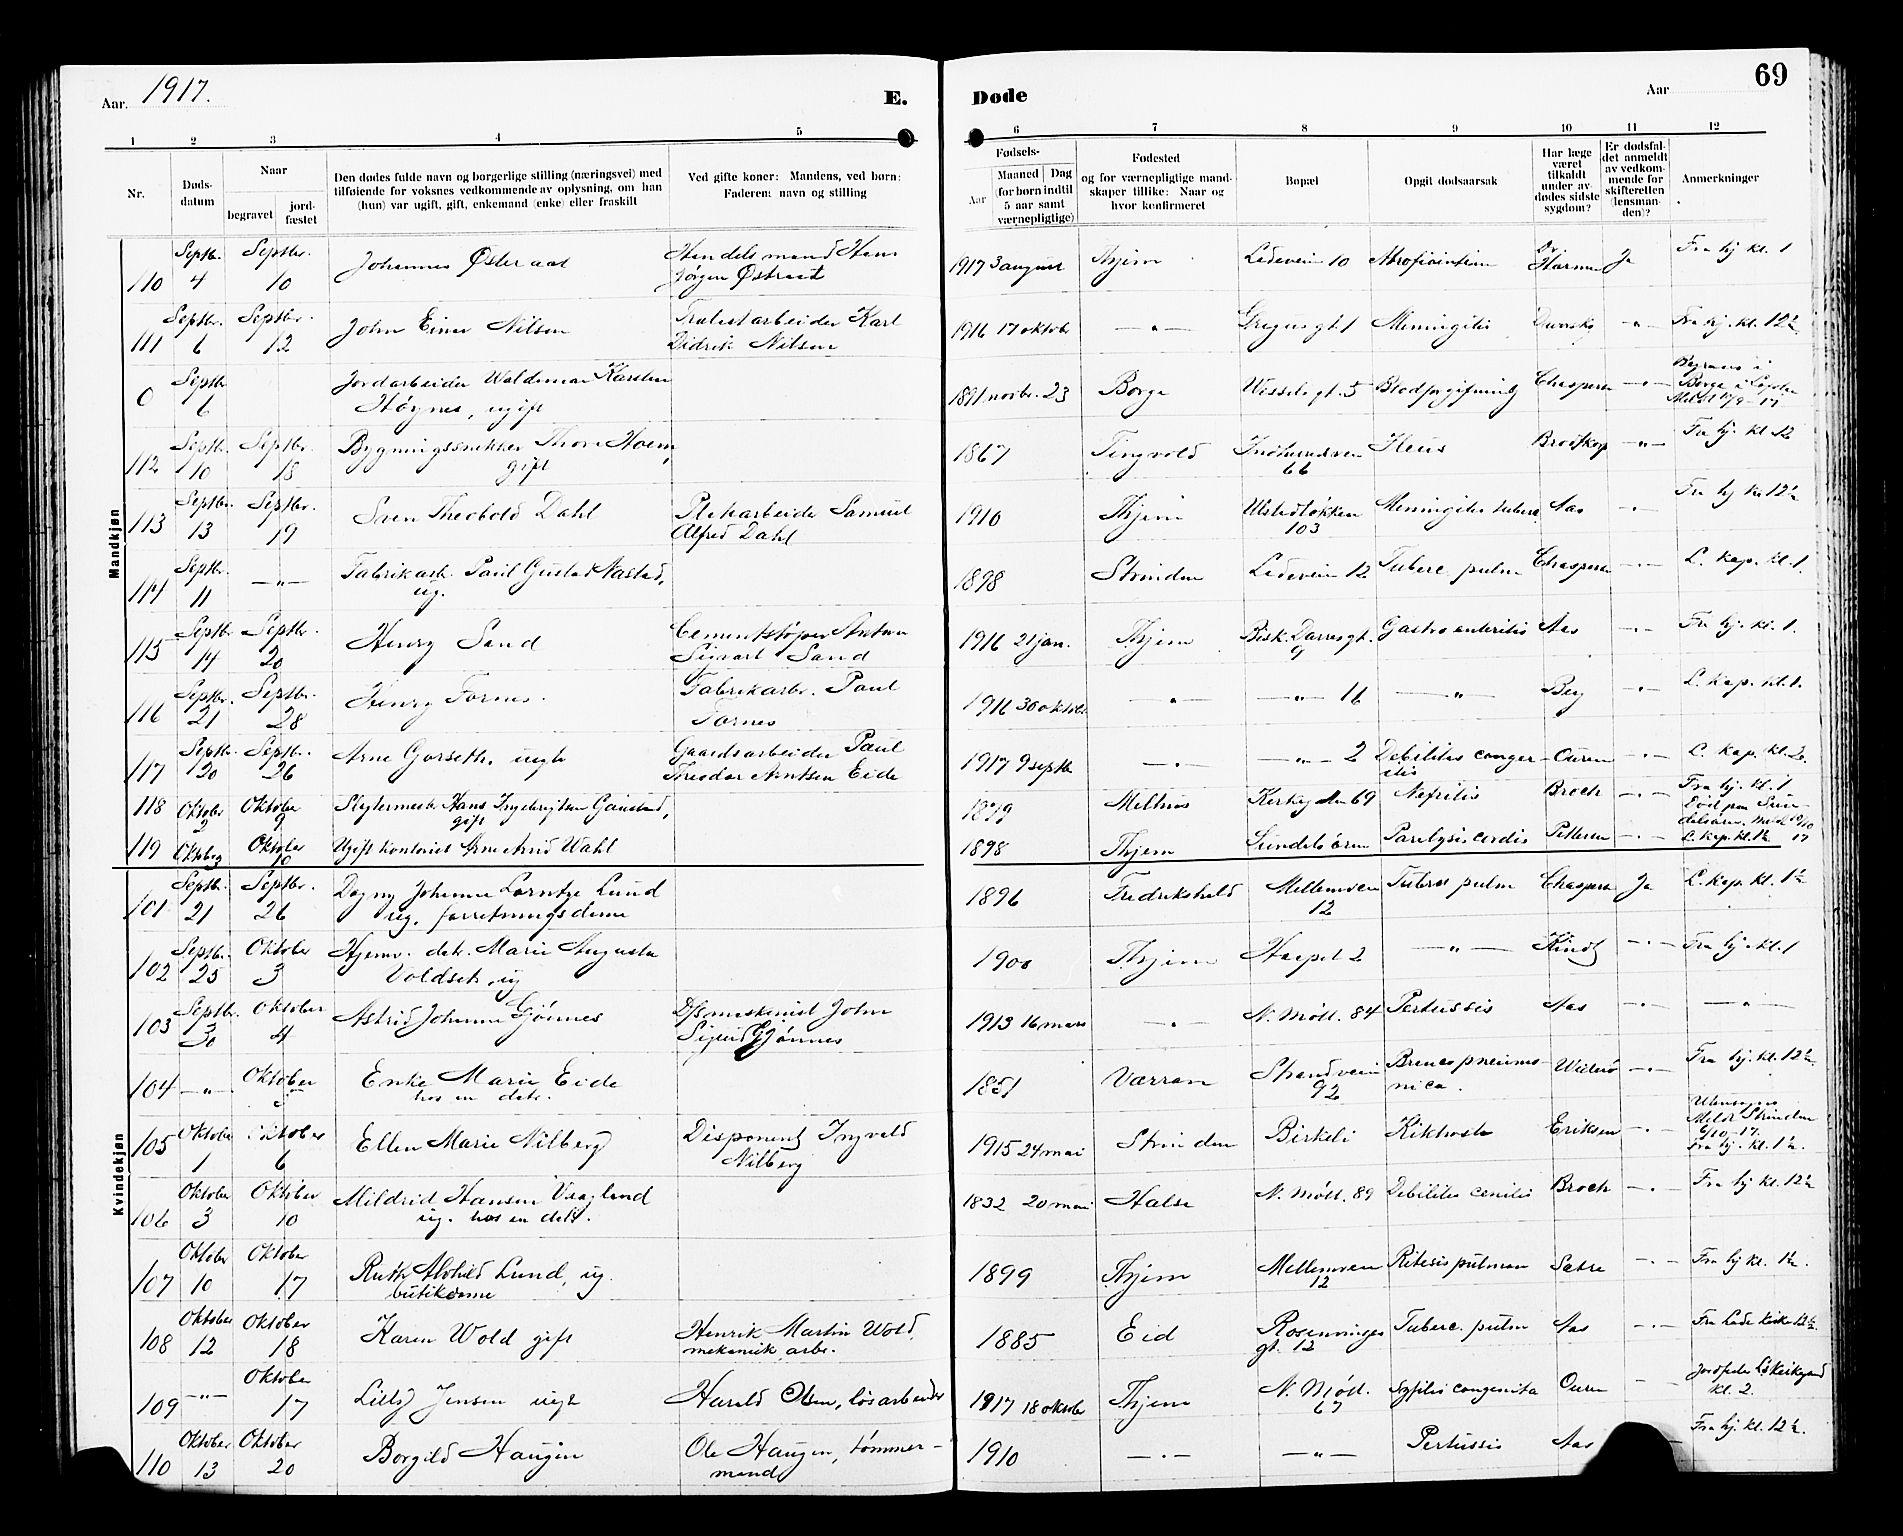 Aar. 1917.
E. Døde
Aar
69
1 2 3 4 5 6 7 8 9 10 11 12
Nr.
Døds-
datum
Naar
begravet
jord-
fæstet
Den dødes fulde navn og borgerlige stilling (næringsvei) med
tilføiende for voksnes vedkommende av oplysning, om han
(hun) var ugift, gift, enkemand (enke) eller fraskilt
Ved gifte koner: Mandens, ved børn:
Faderen: navn og stilling
Fødsels-
Aar
Maaned Dag
(for børn indtil
5 aar samt
værnepligtige)
Fødested
og for værnepligtige mand-
skaper tillike: Naar og
hvor konfirmeret
Bopæl
Opgit dødsaarsak
Har læge
været
tilkaldt
under av-
dødes sidste
sygdom?
Er dødsfal-
det anmeldt
av vedkom-
mende for
skifteretten
(lensman-
den)?
Anmerkninger
Mandkjøn
110 Septbr. 4 Septbr. 10 Johannes Østeraat Handelsmand Hans
Jørgen Østraat 1917 3 august Thjem Ladeveien 10 Dr Ja Fra hj kl. 1
111 Septbr. 6 Septbr. 12 John Einar Nilsen Karl
Didrik Nilsen 1916 17 oktobr —„— gt 1 Meningitis —„— Fra hj. kl. 12½
0 Septbr 6 Jordarbeider Waldemar Karsten
Høgnes, ugift 1891 novbr. 23 Borge Wessels gt. 5 Blodforgiftning —„— Begraves i
Borge i
112 Septbr. 10 Septbr. 18 Bygningssnekker Thore Hoem,
gift 1867 Tingvold Indherredsvei
66 Ileus —„— Fra hj. kl 12
113 Septbr. 13 Septbr. 19 Sven Theobold Dahl Samuel
Alfred Dahl 1910 Thjem
103 Meningitis tuberc. Aas —„— Fra hj kl 12½
114 Septbr. 11 —„— Fabrikarb. Paul Gustav Nastad,
ug. 1898 Strinden Ladeveien 12 Tuberc. pulm —„— L. kap. kl. 1.
115 Septbr. 14 Septbr. 20 Henry Sand Cementstøper Anton
Sigvart Sand 1916 21 jan. Thjem Bisk. Darresgt.
9 Gastro enteritis Aas —„— Fra hj. kl. 1.
116 Septbr. 21 Septbr. 28 Henry Fornes. Fabrikarbr. Paul
Fornes 1916 30 oktobr —„— —„— 16 —„— Berg —„— L. kap. kl. 1.
117 Septbr. 20 Septbr. 26 Arne Garseth, uegte Gaardsarbeider Paul
Theodor Arntsen Eide 1917 9 septbr —„— —„— 2 Debilitas conger-
itis Ouren —„— L. kap. kl. 2.
118 Oktober 2 Oktober 9 Slagtermester Hans Ingebrigtsen Gaustad,
gift 1879 Melhus 69 Nefritis Broch —„— Fra hj. kl. 1
119 Oktober 3 Oktober 10 Ugift kontorist Arne Arvid Wahl 1898 Thjem Paralysis cordis Petersen —„— L. kap. kl. 1½
Kvindekjøn
101 Septbr. 21 Septbr. 26 Dagny Johanne Larntze Lund
ug. forretningsdame 1896 Fredrikshald Mellemveien
12 Tuberc pulm Ja L. kap. kl. 1½
102 Septbr. 25 Oktober 3 Hjemv. datr. Marie Augusta
Voldseth, ug 1900 Thjem —„— Kindt —„— Fra hj. kl. 1
103 Septbr. 30 Oktober 4 Astrid Johanne Gjönnes Dfs maskinist John
Sigurd Gjönnes 1913 16 mars —„— N. Møll. 84 Pertussis Aas —„— —„—
104 —„— Oktober 5 Enke Marie Eide
hos en datr. 1851 Værran Strandveien
92 Broncopneumo-
nica. —„— Fra hj. kl. 12½
105 Oktober 1 Oktober 6 Ellen Marie Nilberg Disponent Ingvald
Nilberg 1915 24 mai Strinden Birkeli Kikhoste Eriksen —„— Utensogns
Meldt Strinden
6/10-17.
Fra hj. kl. 1½.
106 Oktober 3 Oktober 10 Mildrid Hansen Vaagland
ug. hos en datr. 1832 20 mai Halse N. Møll. 89 Debilitas cenilis Broch —„— Fra hj kl. 12½
107 Oktober 10 Oktober 17 Ruth Alvhild Lund, ug.
butikdame 1899 Thjem Mellemveien
12 Sætre —„— Fra hj kl. 1½.
108 Oktober 12 Oktober 18 Karen Wold gift Henrik Martin Wold,
mekanisk arbr. 1885 Eid
gt. 12 Tuberc. pulm Aas —„— Fra Lade kirke 12½.
109 —„— Oktober 17 Lilly Jensen uegte Harald Olsen, løsarbeider 1917 18 oktober Thjem N. Møll.
67 Syfilis congenita Ouren —„—
kl. 2.
110 Oktober 13 Oktober 20 Borgild Haugen Ole Haugen, tømmer-
mand 1910 —„— —„— Pertussis Aas Fra hj. kl. 12½.